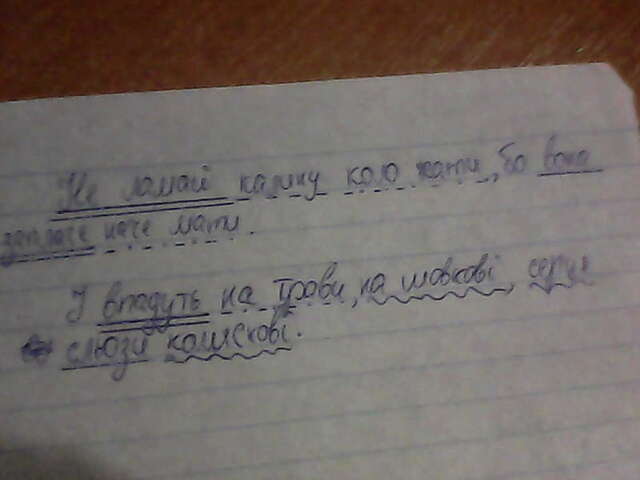 Не ламай калину коло хати, бо вона
заплаче наче мати.
І впадуть на трави, на шовкові,
сльози колискові.